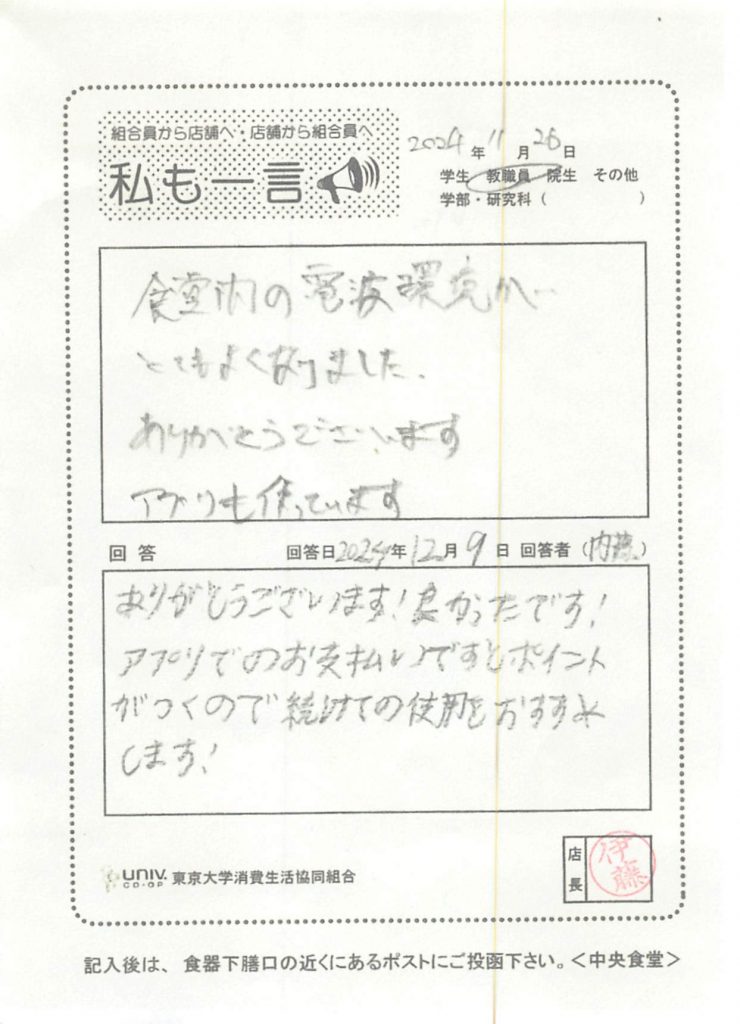 組合員から店舗へ・店舗から組合員へ
私も一言
2024年11月26日
学生 教職員 院生 その他
学部・研究科（　　　）
食堂内の電波環境が
とてもよくなりました。
ありがとうございます
アプリも使っています
回答 回答日2024年12月9日 回答者（内藤）
ありがとうございます！良かったです！
アプリでのお支払いですとポイント
がつくので続けての使用をおすすめ
します！
UNIV. CO-OP 東京大学消費生活協同組合
店長 伊藤
記入後は、食器下膳口の近くにあるポストにご投函下さい。＜中央食堂＞